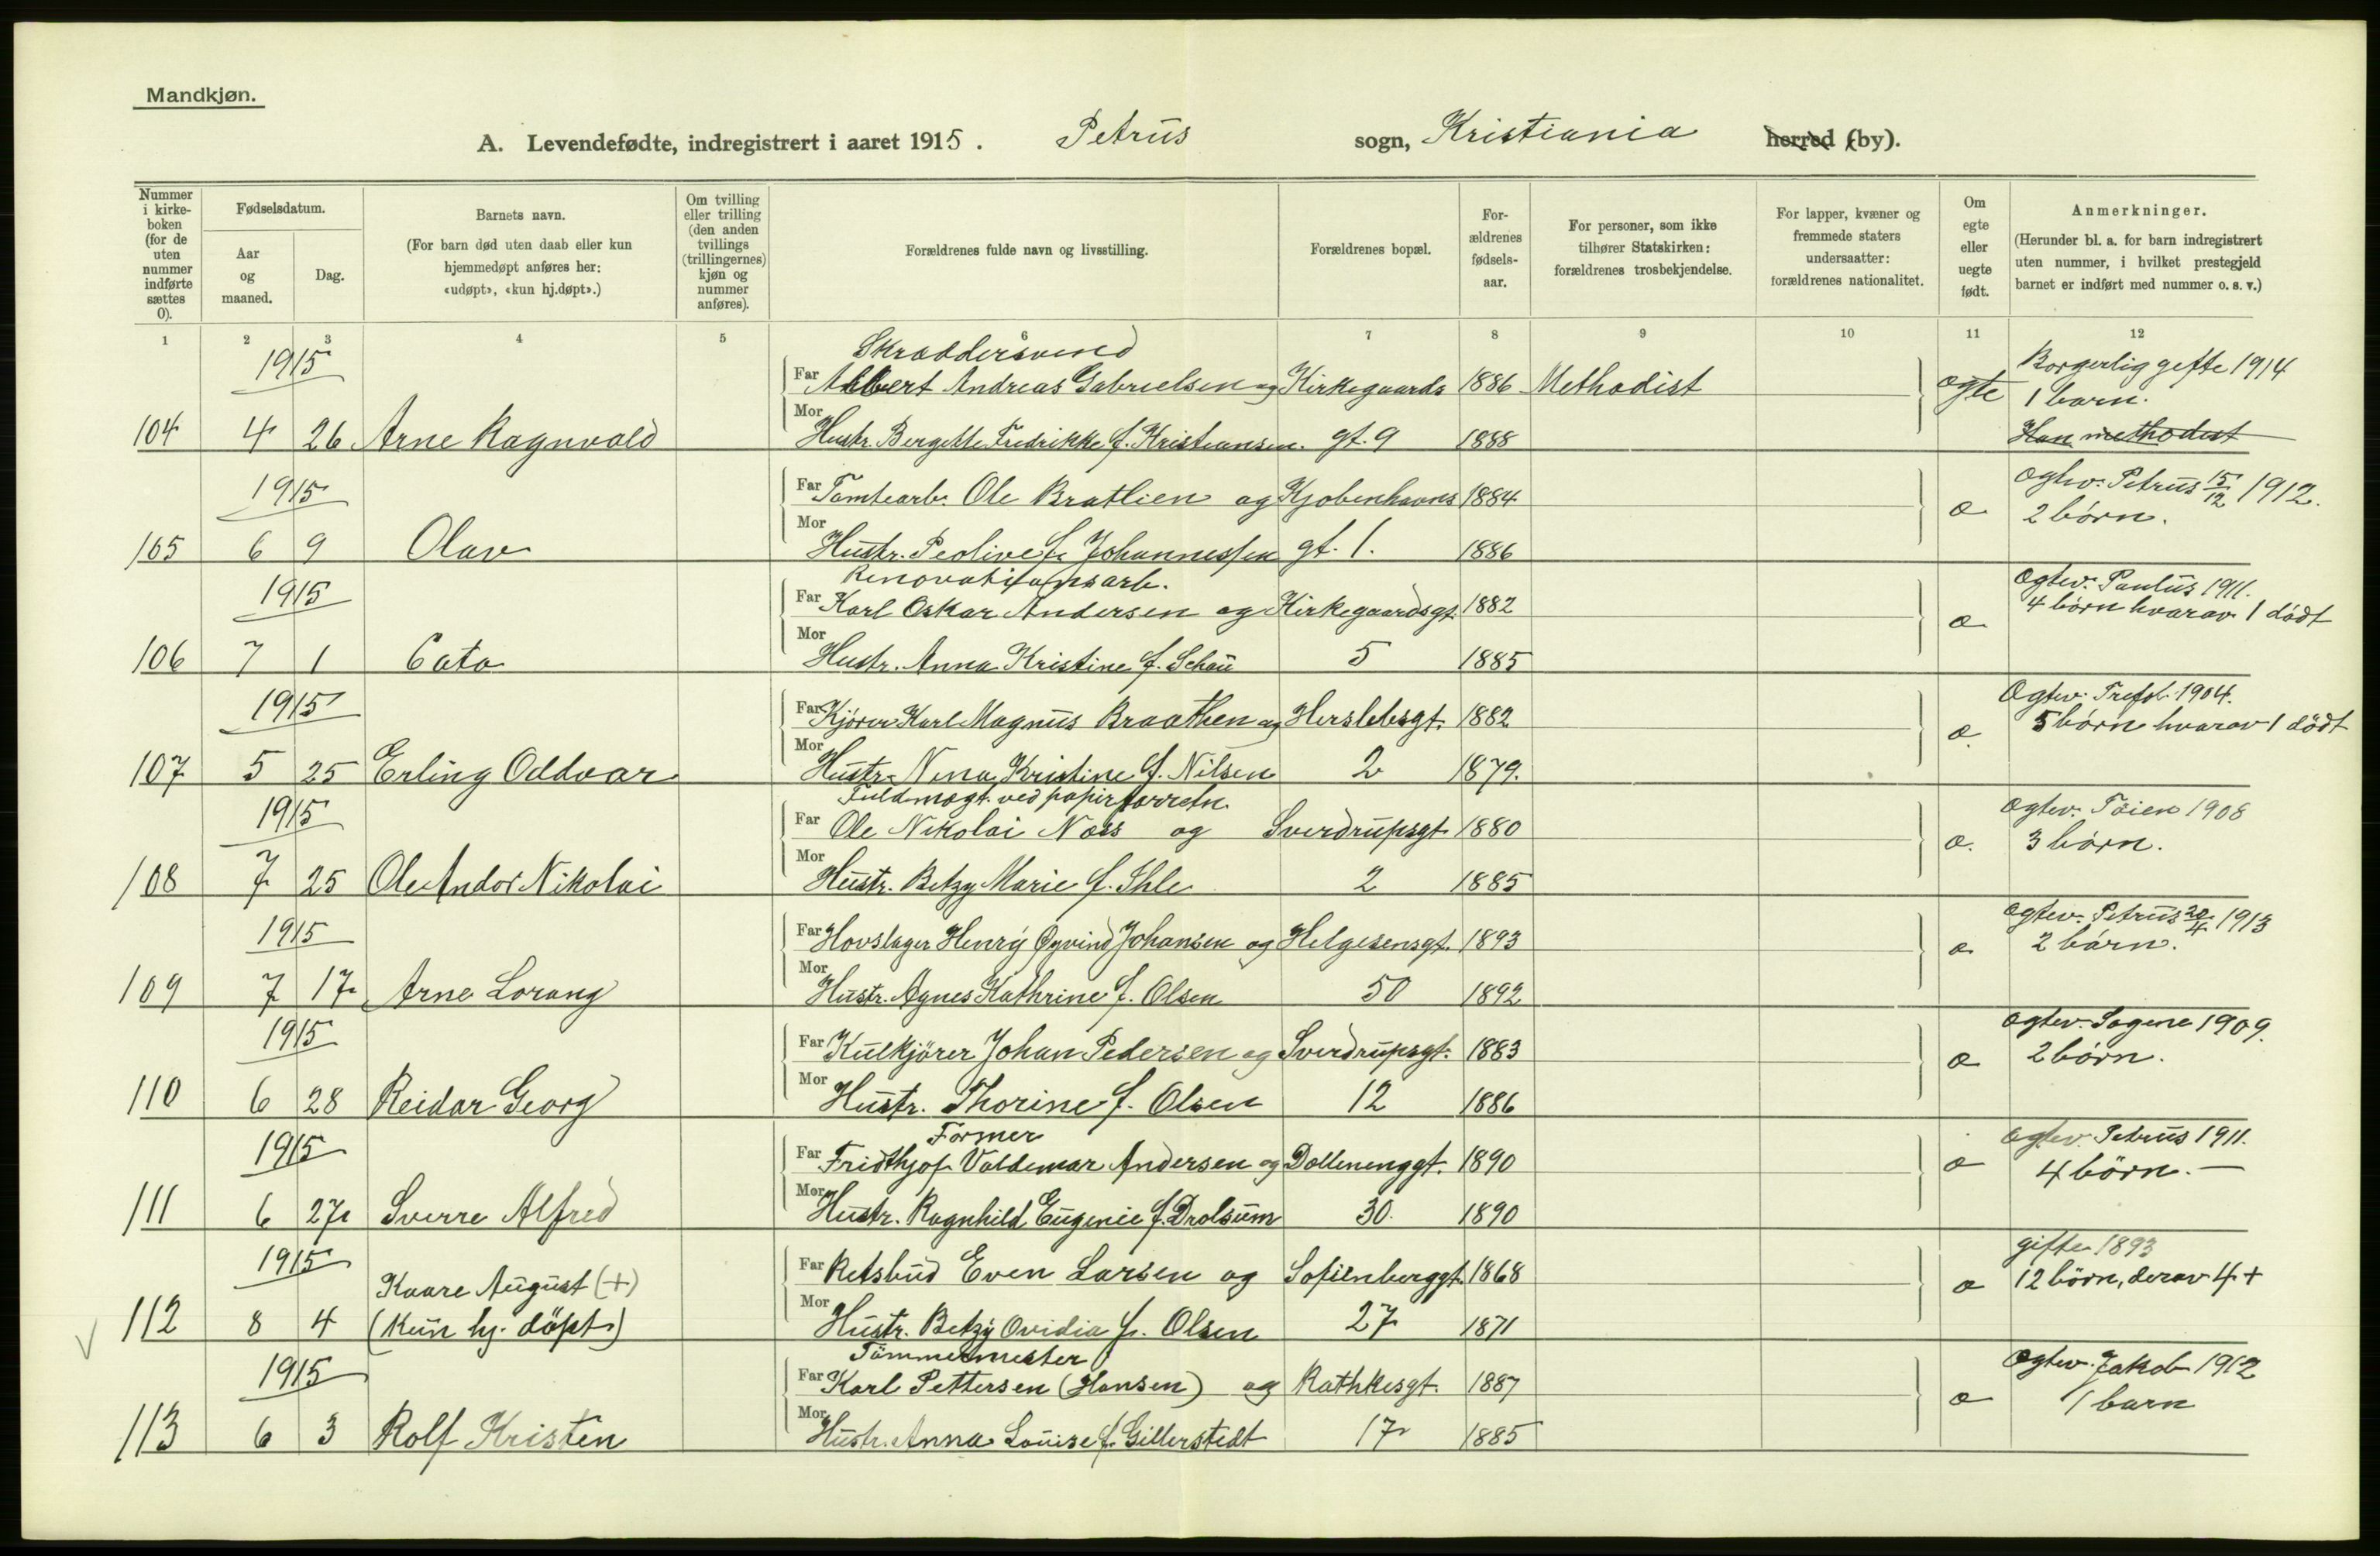 Mandkjøn.
A. Levendefødte, indregistrert i aaret 1915. Petrus sogn, Kristiania herred (by).
Nummer i kirkeboken (for de uten nummer indførte sættes 0).
Fødselsdatum.
Aar og maaned.
Dag.
Barnets navn.
(For barn død uten daab eller kun hjemmedøpt anføres her: «udøpt», «kun hj.døpt».)
Om tvilling eller trilling (den anden tvillings (trillingernes) kjøn og nummer anføres).
Forældrenes fulde navn og livsstilling.
Forældrenes bopæl.
Forældrenes fødselsaar.
For personer, som ikke tilhører Statskirken: forældrenes trosbekjendelse.
For lapper, kvæner og fremmede staters undersaatter: forældrenes nationalitet.
Om egte eller uegte født.
Anmerkninger.
(Herunder bl. a. for barn indregistrert uten nummer, i hvilket prestegjeld barnet er indført med nummer o. s. v.)
1 2 3 4 5 6 7 8 9 10 11 12
1915 Skræddersvend
Far Albert Andreas Gabrielsen og Kirkegaards 1886 Methodist ægte Borgerlig gifte 1914
1 barn.
104 4 26 Arne Ragnvald Mor Hustr. Bergitte Fredrikke f. Kristiansen. gt. 9 1888 Han methodist
1915 Far Tomtearb. Ole Bratlien og Kjøbenhavns 1884 æ Ægtev. Petrus 15/12 1912.
2 børn.
105 6 9 Olav Mor Hustr. Peoline f. Johannessen gt. 1. 1886
1915 Renovationsarb.
Far Karl Oskar Andersen og Kirkegaardsgt. 1882 æ Ægtev. Paulus 1911.
4 børn hvorav 1 dødt
106 7 1 Cato Mor Hustr. Anna Kristine f. Schau 5 1885
1915 Far Kjører Karl Magnus Braathen og Herslebsgt. 1882 æ. Ægtev. Trefol. 1904.
5 børn hvorav 1 dödt
107 5 25 Erling Oddvar Mor Hustr. Nina Kristine f. Nilsen 2 1879.
1915 Fuldmægt. ved papirforretn.
Far Ole Nikolai Næss og Sverdrupsgt. 1880 æ. Ægtev. Tøien 1908
3 børn.
108 7 25 Ole Andor Nikolai Mor Hustr. Betzy Marie f. Ihle 2 1885
1915 Far Hovslager Henry Øyvind Johansen og Helgesensgt. 1893 æ Ægtev. Petrus 20/4 1913
2 børn.
109 7 17 Arne Lorang Mor Hustr. Agnes Kathrine f. Olsen 50 1892
1915 Far Kulkjörer Johan Pedersen og Sverdrupsgt. 1883 æ Ægtev. Sagene 1909.
2 børn.
110 6 28 Reidar Georg Mor Hustr. Thorine f. Olsen 12 1886
1915 Former
Far Fridthjof Valdemar Andersen og Dælenenggt. 1890 æ Ægtev. Petrus 1911.
4 børn.
111 6 27 Sverre Alfred Mor Hustr. Ragnhild Eugenie f. Drolsum 30. 1890
1915 Kaare August (+) Far Retsbud Even Larsen og Sofienberggt. 1868 æ gifte 1893
12 börn, derav 4 +
112 8 4 (Kun hj. döpt) Mor Hustr. Betzy Ovidia f. Olsen 27 1871
1915 Tömmermester
Far Karl Pettersen (Hansen) og Rathkesgt. 1887 æ Ægtev. Jakob 1912
1 barn
113 6 3 Rolf Kristen Mor Hustr. Anna Louise f. Gillerstedt 17 1885